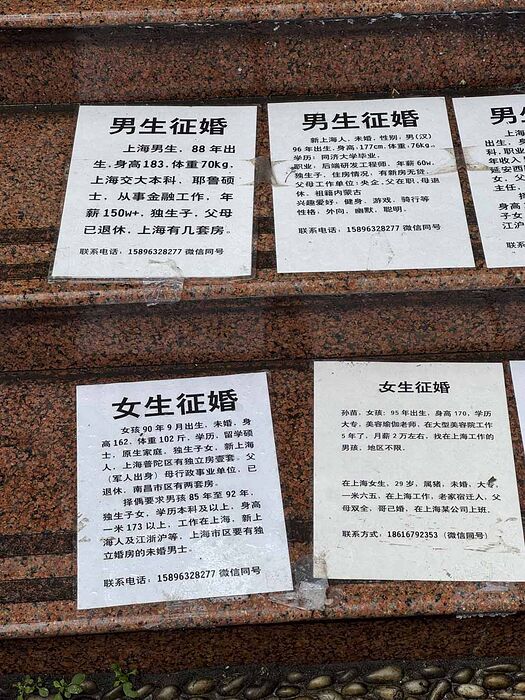 男生征婚
上海男生，88年出
生，身高183，体重70kg，
上海交大本科，耶鲁硕
士，从事金融工作，年
薪150w+，独生子，父母
已退休，上海有几套房。
联系电话：15896328277 微信同号
男生征婚
新上海人，未婚，性别，男(汉)
96年出生，身高，177cm，体重，76kg。
学历：同济大学毕业，
职业，后端研发工程师，年薪60w。
独生子，住房情况，有新房无贷，
父母工作单位：央企，父在职，母退
休，祖籍内蒙古
兴趣爱好，健身、游戏，骑行等
性格，外向，幽默，聪明。
联系电话：15896328277 微信同号
男生
科，职业
年收入
延安西
女，父
主任，
子女
江沪
联系
女生征婚
女孩，90年9月出生，未婚，身
高162，体重102斤，学历，留学硕
士，原生家庭，独生子女，新上海
人，上海普陀区有独立房壹套。父
（军人出身）母行政事业单位，已
退休，南昌市区有两套房。
择偶要求男孩85年至92年，
独生子女，学历本科及以上，身高
一米173以上，工作在上海，新上
海人及江浙沪等，上海市区要有独
立婚房的未婚男士。
联系电话：15896328277 微信同号
女生征婚
孙苗，女孩：95年出生，身高170，学历
大专，美容瑜伽老师，在大型美容院工作
5年了，月薪2万左右，找在上海工作的
男孩，地区不限。
在上海女生，29岁，属猪，未婚，大专
一米六五，在上海工作，老家宿迁人，父
母双全，哥已婚，在上海某公司上班。
联系方式：18616792353（微信同号）